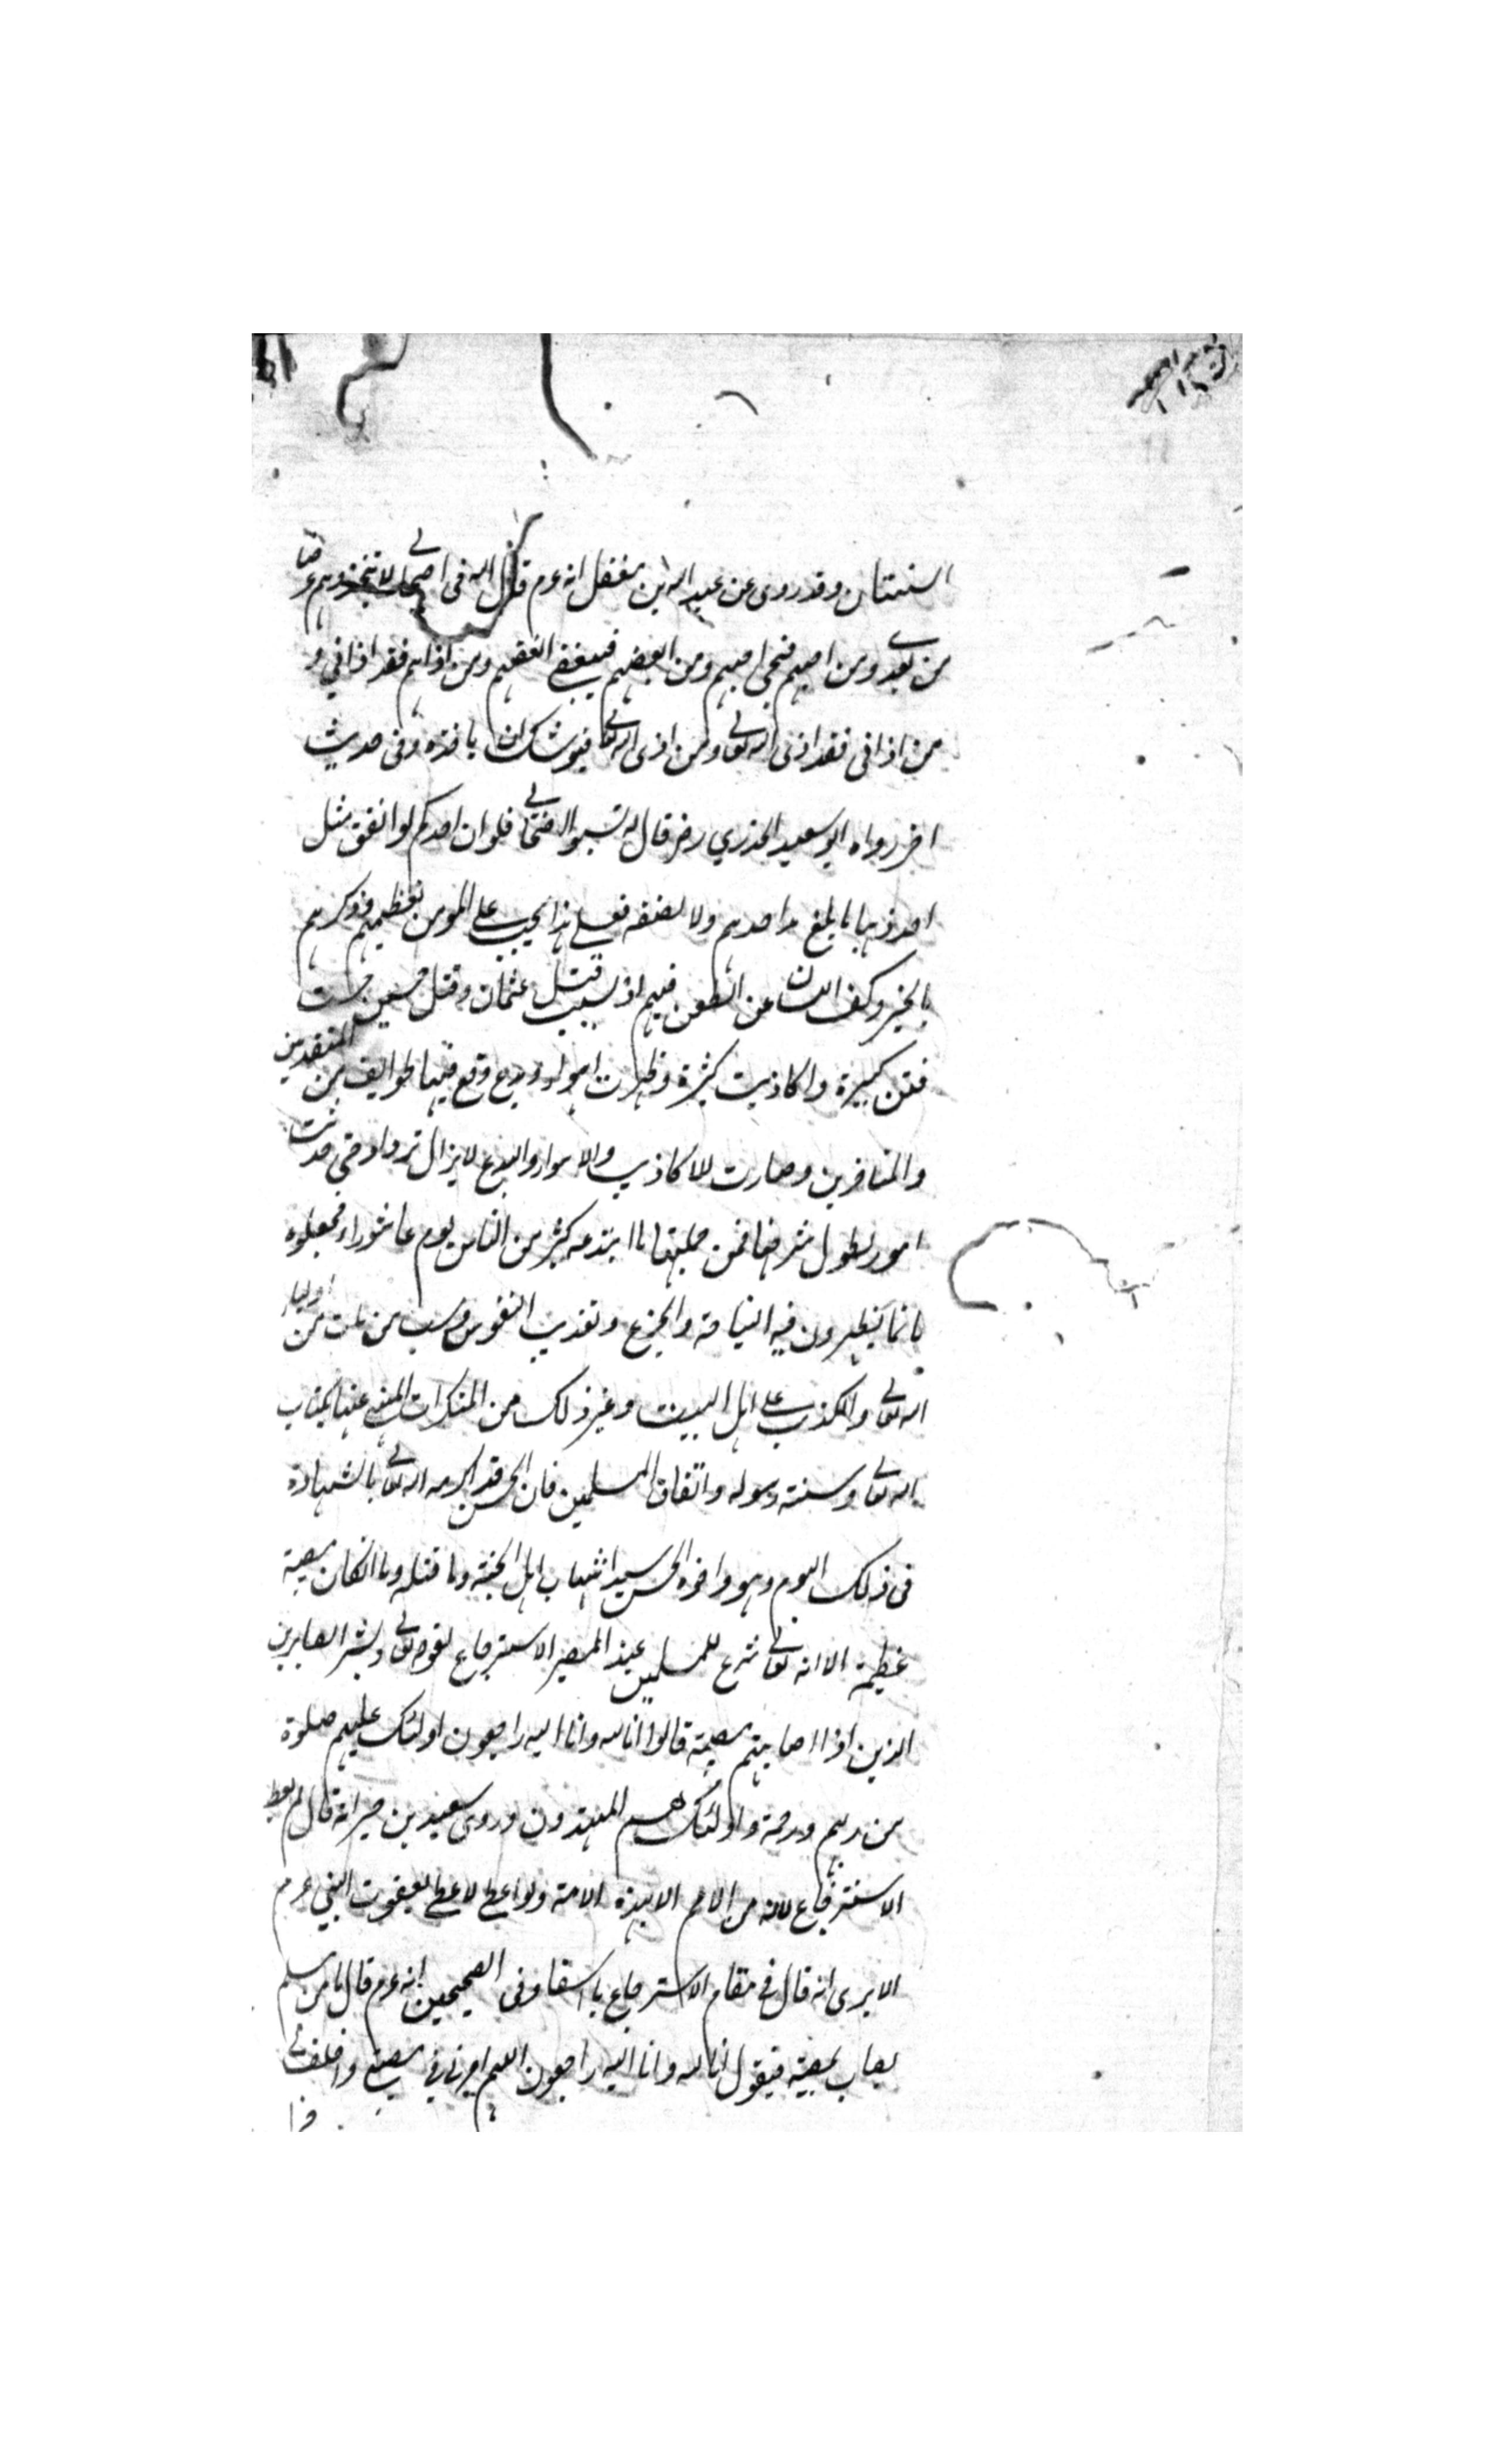 السنتان وقد روى عن عبد الله بن مغفل انه عم قال الله فى اصحابى لا تتخذوهم غرضا
من بعدى ومن احبهم فبحبى احبهم ومن ابغضهم فببغضى ابغضهم ومن اذاهم فقد اذانى و
من اذانى فقد اذى الله تعالى ومن اذى الله تعالى فيوشك ان ياخذه وفى حديث
اخر رواه ابو سعيد الخدري رضر قال لا تسبوا اصحابى فلو ان احدكم لو انفق مثل
احد ذهبا ما بلغ مد احدهم ولا نصفه فعلى هذا يجب على المومن تعظيمهم وذكرهم
بالخير وكف اللسان عن الطعن فيهم اذ بسبب قتل عثمان وقتل حسين حدثت
فتن كبيرة واكاذيب كثيرة وظهرت اهواء وبدع وقع فيها طوايف من المتقدمين
والمتاخرين وصارت الاكاذيب والاهواء والبدع لا يزال تزداد حتى حدثت
امور يطول شرحها فمن جملتها ما ابتدعه كثير من الناس يوم عاشوراء فجعلوه
ماتما يظهرون فيه النياحة والجزع وتعذيب النفوس وسب من مات من اولياء
الله تعالى والكذب على اهل البيت وغير ذلك من المنكرات المنهى عنها بكتاب
الله تعالى وسنة رسوله واتفاق المسلمين فان الحسين قد اكرمه الله تعالى بالشهادة
فى ذلك اليوم وهو واخوه الحسن سيدا شباب اهل الجنة وما قتله وما انكان مصيبة
عظيمة الا انه تعالى شرع للمسلمين عند المصير الاسترجاع لقوله تعالى وبشر الصابرين
الذين اذا اصابتهم مصيبة قالوا انا لله وانا اليه راجعون اولئك عليهم صلوة
من ربهم ورحمة واولئك هم المهتدون وروى سعيد بن جبير انه قال لم يعط
الاسترجاع لامة من الامم الا هذه الامة ولو اعطى لاعطى يعقوب النبى عم
الا يرى انه قال فى مقام الاسترجاع يا اسفا وفى الصحيحين انه عم قال ما من مسلم
يصاب بمصيبة فيقول انا لله وانا اليه راجعون اللهم اجرنى فى مصيبتى واخلف لى